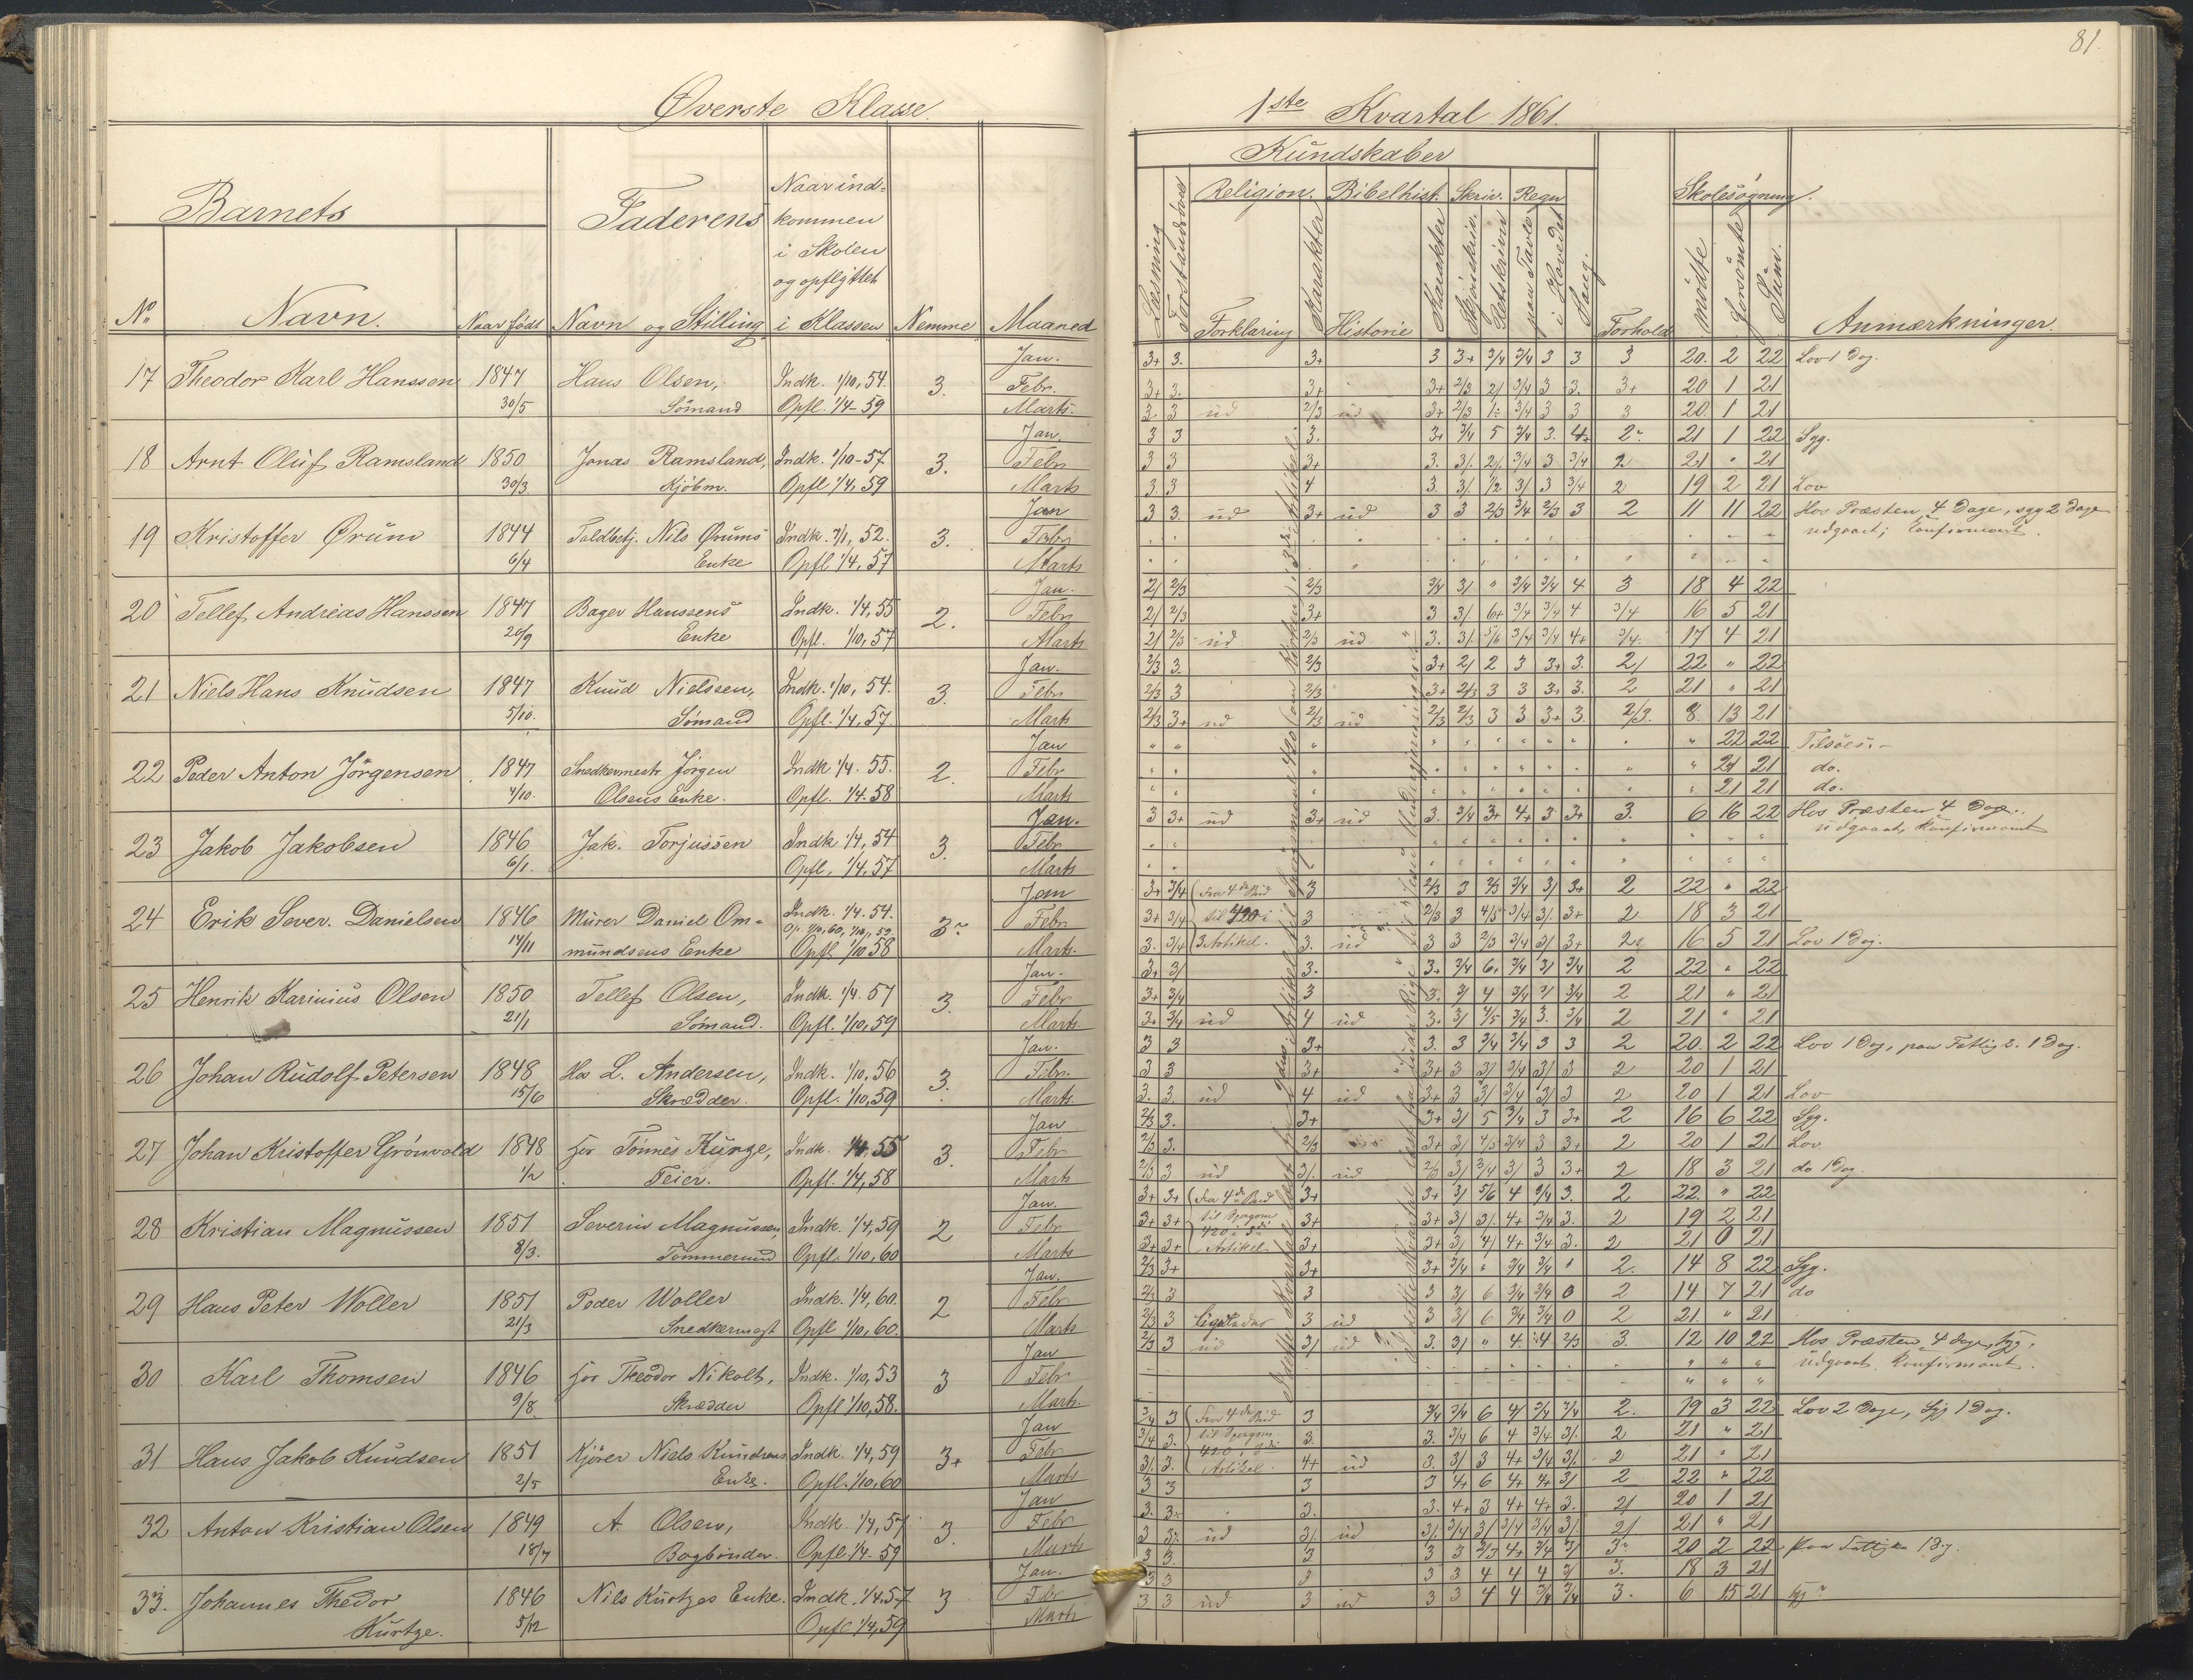 81.
Øverste Klasse.
1ste Kvartal 1861.
Barnets
Faderens
Naar ind-
kommen
i Skolen
og opflyttet
i Klassen
No
Navn.
Naar født
Navn og Stilling
Nemme
Maaned
Kundskaber
Læsning
Forstandsøvel
Religion.
Forklaring
Karakter
Bibelhist.
Historie
Karakter
Skriv.
Skjønskriv.
Retskrivn
Regn
paa Tavle
i Hovedet
Sang.
Forhold
Skolesøgning.
mødte
forsømte
Sum.
Anmærkninger.
17 Theodor Karl Hanssen 1847 Hans Olsen, Indk. 1/10, 54. 3. Jan. 3+ 3. 3+ 3 3+ 3/4 3/4 3 3 3 20. 2 22 Lov 1 Dag.
30/5 Sömand Opfl. 1/4-59 Febr. 3+ 3. 3+ 3+ 2/3 2/ 3/4 3 3. 3+ 20 1 21
Marts. 3. 3 ud 2/3 ud 3+ 2/3 1÷ 3/4 3 3 3 20. 1 21
18 Arnt Oluf Ramsland 1850 Jonas Ramsland, Indk. 1/10-57. 3. Jan. 3 3 3. 3+ 3/4 5 3/4 3. 4+ 2 21 1 22 Syg.
30/3 Kjöbm. Opfl 1/4, 59 Febr 3 3 3+ 3. 3/. 2/. 3/4 3 3/4 2 21 " 21
Marts 3. 3 4 3. 3/. 1/2 3/. 3 3/4 2 19 2 21 Lov
19 Kristoffer Ørum 1844 Toldbetj. Nils Ørums Indk. 7/1, 52. 3. Jan 3 3. ud 3+ ud 3 3 2/3 3/4 2/3 3 2 11 11 22 Hos Præsten 4 Dage, syg 2 Dage
6/4 Enke Opfl 1/4, 57 Febr udgaaet; Konfirmant.
Marts
20 Tellef Andreas Hanssen 1847 Bager Hanssens Indk. 1/4, 55 2. Jan. 2/ 2/3 2/3 3/4 3/ " 3/4 3/4 4 3 18 4 22
20/9 Enke Opfl. 1/10, 57 Febr 2/ 2/3 3+ 3 3/ 6+ 3/4 3/4 4 3/4 16 5 21
Marts 2/ 2/3 ud 2/3 ud 3. 3/. 5/6 3/4 3/4 4+ 3/4. 17 4 21
21 Niels Hans Knudsen 1847 Knud Nielssen, Indk. 1/10, 54. 3. Jan. 2/3 3. 2/3 3+ 2/ 2 3 3+ 3. 2/ 22 " 22
5/10. Sömand Opfl. 1/4, 57 Febr 2/3 3 2/3 3+ 2/3 3 3 3+ 3. 2 21 " 21
Marts 2/3 3+ ud 2/3 ud 2/3 2/3 3 3 3+ 3. 2/3. 8. 13 21
22 Peder Anton Jörgensen 1847 Snedkermestr Jörgen Indk 1/4. 55. 2. Jan " 22 22 Tilsöes.
4/10. Olsens Enke. Opfl. 1/4. 58 Febr " 21 21 do.
Marts " 21 21 do.
23 Jakob Jakobsen 1846 Jak. Torjussen Indk 1/4, 54 3. Jan. 3 3+ ud 3+ ud 3. 3/4 3+ 4+ 3 3+ 3. 6 16 22 Hos Præsten 4 Dage.
6/1. Opfl, 1/4, 57 Febr udgaaet, Konfirmant
Marts
24 Erik Sever. Danielsen 1846 Murer Daniel Om- Indk. 1/4. 54. 3 Jan 3+ 3/4 Fra 4de Bud 3 2/3 3 2/3 3/4 3/ 3+ 2 22 " 22
14/11 mundsens Enke Opfl 1/10 58 Febr 3+ 3/4 til 420 i 3 2/3 3 4/5 3/4 3/. 3+ 2 18 3 21
Marts. 3. 3/4 3 Artikel. 3. ud 3 3 2/3 3/4 3/ 3+ 2 16 5 21 Lov 1 Dag.
25 Henrik Karinius Olsen 1850 Tellef Olsen, Indk. 1/4. 57 3. Jan. 3+ 3/ 3. 3+ 3/4 6. 3/4 3/ 3/4 2 22 " 22
21/1 Sömand. Opfl. 1/10, 59 Febr 3+ 3/4 3 3. 3/ 4 3/4 3/ 3/4 2 21 " 21
Marts. 3+ 3/4 ud 4 ud 3. 3/ 4/5 3/4 3. 3/4 2 21 " 21
26 Johan Rudolf Petersen 1848 Hos L. Andersen, Indk. 1/10, 56 3. Jan. 3 3 3+ 3. 3 3/4 3/4 3 3 2 20. 2 22 Lov 1 Dag, paa Fattig 1 Dag.
15/6 Skrædder. Opfl. 1/10, 59 Febr. 3 3 3+ 3+ 3 3/ 3/4 3/ 3 2 20 1 21
Marts 3. 3. ud 4 ud 3+ 3 3/ 3/4 3/ 3 2 20 1 21 Lov
27 Johan Kristoffer Grönvold 1848 For Tönnes Kurge, Indk. 1/4, 55 3. Jan 2/3 3. 3+ 3+ 3/ 5 3/4 3 3+ 2 16 6 22 Syg.
1/2 Feier. Opfl. 1/4, 58 Febr 2/3 3. 2/3 3+ 3/ 4/5 3/4 3 3+ 2 20 1 21 Lov
Marts 2/3 3 ud 3/. ud 2/3 3/ 3/4 3/ 3 3+ 2 18 3 21 do 1 Dag.
28 Kristian Magnussen 1851 Severin Magnussen, Indk. 1/4, 59 2 Jan. 3+ 3+ Fra 4de Bud 3+ 3+ 3/ 5/6 4 3/4 3. 2 22. " 22
8/3. Tömmermd Opfl. 1/10, 60 Febr 3+ 3+ til Spørgsm 3+ 3+ 3/ 3/. 4+ 3/4 3. 2 19 2 21
Marts 3+ 3+ 420 i 3die Artikel. 3+ 3+ 3/ 4/ 4+ 3/4 3. 2 21 0 21
29 Hans Peter Woller 1851 Peder Woller Indk. 1/4, 60. 2 Jan. 2/3 3+ 3+ 3+ 3/4 " 3/4 3/4 " 2. 14 8 22 Syg.
21/3 Snedkermest Opfl 1/10, 60. Febr 2/3 3 3 3 3/ 6 3/4 3/4 0 2 14 7 21 do
Marts 2/3 3 3 ud 3 3/ 6 3/4 3/4 0 2 21. " 21
30 Karl Thomsen 1846 For Theodor Nikolt, Indk. 1/10, 53 3 Jan 2/3 3 ud 3/ ud 3. 3/ " 4. 4 2/3 3. 12 10 22 Hos Præsten 4 dage, syg,
9/8. Skrædder Opfl 1/10, 58. Febr udgaaet Konfirmant.
Marts.
31 Hans Jakob Knudsen 1851 Kjörer Niels Knudsens Indk. 1/4, 59 3+ Jan 3/4 3 Fra 4de Bud 3 3/4 3/4 6 4/ 3/4 3/4 2. 19 3 22 Lov 2 Dage, syg 1 Dag.
2/5 Enke. Opfl. 1/10, 60 Febr 3/4 3. til Spørgsm 3. 3. 3/4 6 4 3/4 3/. 2 21 " 21
Marts 3/. 3. 420 i 3die Artikel. 4+ ud 3. 3/ 3 4+ 3/4 3/. 2 21 " 21
32 Anton Kristian Olsen 1849 A. Olsen, Indk. 1/4, 57 3. Jan 3 3 3 3 4+ 6 4+ 4+ 3/ 2 22 " 22
18/7 Bogbinder. Opfl 1/4. 59 Febr 3. 3. 3. 3. 4+ 3 4+ 4+ 3. 2/ 20 1 21
Marts 3 3/. ud 3/. ud 3/. 3/4 3/ 3/4 3/4 3/ 2/ 21 " 21
33. Johannes Thedor 1846 Nils Kurtzes Enke. Indk. 1/4. 57 3 Jan. 3 3. 3 3 3 2/3 4+ 3/4 3/ 3 20 2 22 paa 1 Dg.
Kurtze. 5/12 Opfl 1/4, 59 Febr 3 3 3 3 3 4 4 4 3/ 3. 18 3 21
Marts 3 3 ud 3 ud 3 3 4 4 3/4 3/4 3. 6 15 21 syg